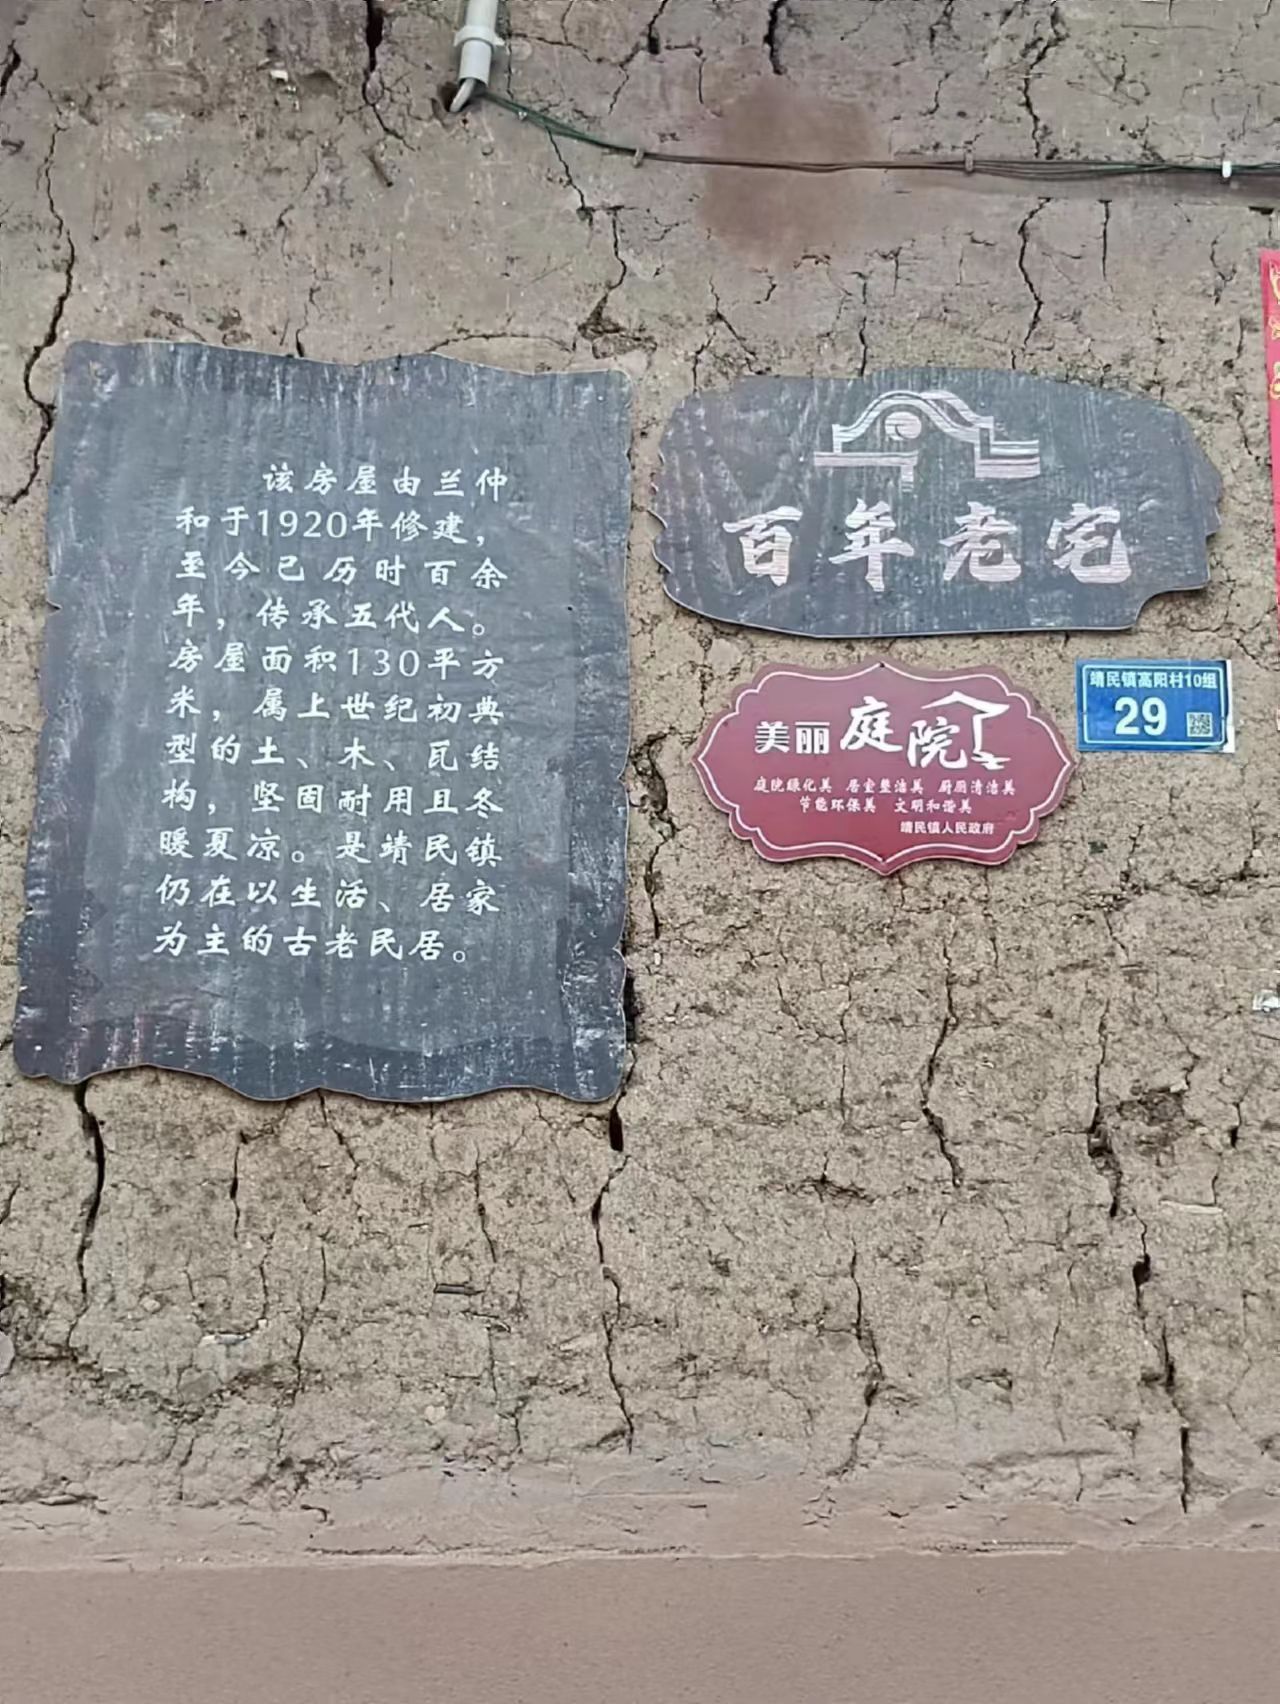 该房屋由兰仲
和于1920年修建，
至今已历时百余
年，传承五代人。
房屋面积130平方
米，属上世纪初典
型的土、木、瓦结
构，坚固耐用且冬
暖夏凉。是靖民镇
仍在以生活、居家
为主的古老民居。
百年老宅
美丽庭院
庭院绿化美 居室整洁美 厨厕清洁美
节能环保美 文明和谐美
靖民镇人民政府
靖民镇高阳村10组
29